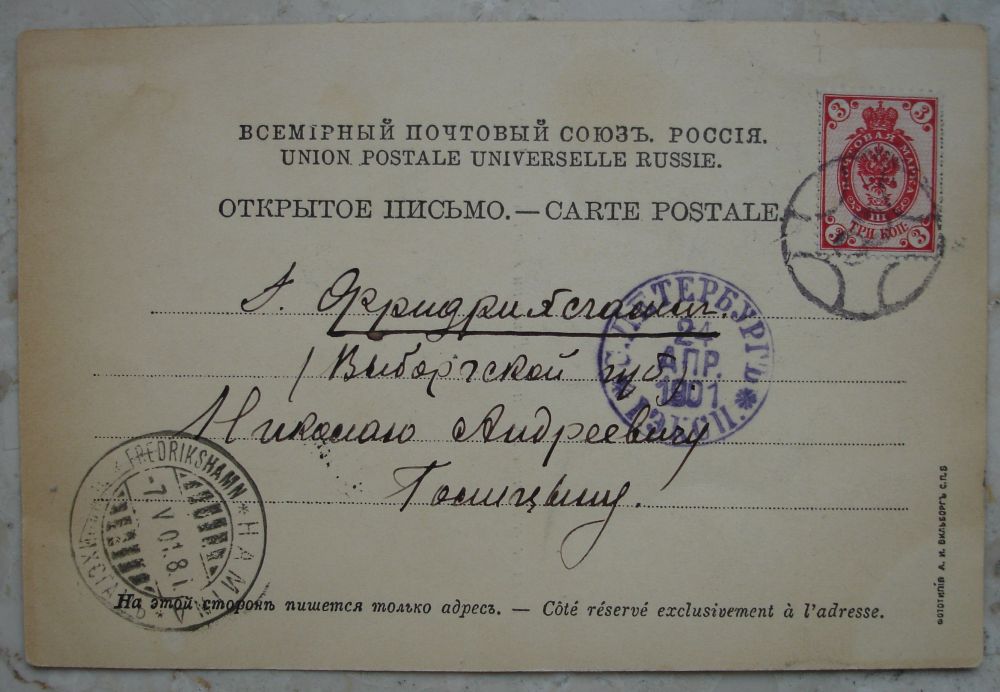 ВСЕМІРНЫЙ ПОЧТОВЫЙ СОЮЗЪ. РОССІЯ.
UNION POSTALE UNIVERSELLE RUSSIE.
ОТКРЫТОЕ ПИСЬМО. — CARTE POSTALE.
3 3
ПОЧТОВАЯ МАРКА
III
ТРИ КОП.
3 3
Г. Фридрихсгамъ.
(Выборгской губ.)
Николаю Андреевичу
Голицыну.
С.ПЕТЕРБУРГЪ
24
АПР.
1901
FREDRIKSHAMN * HAMINA *
-7 V 01.8
На этой сторонѣ пишется только адресъ. — Côté réservé exclusivement à l'adresse.
ФОТОТИПІЯ А. И. ВИЛЬБОРГЪ С.П.Б